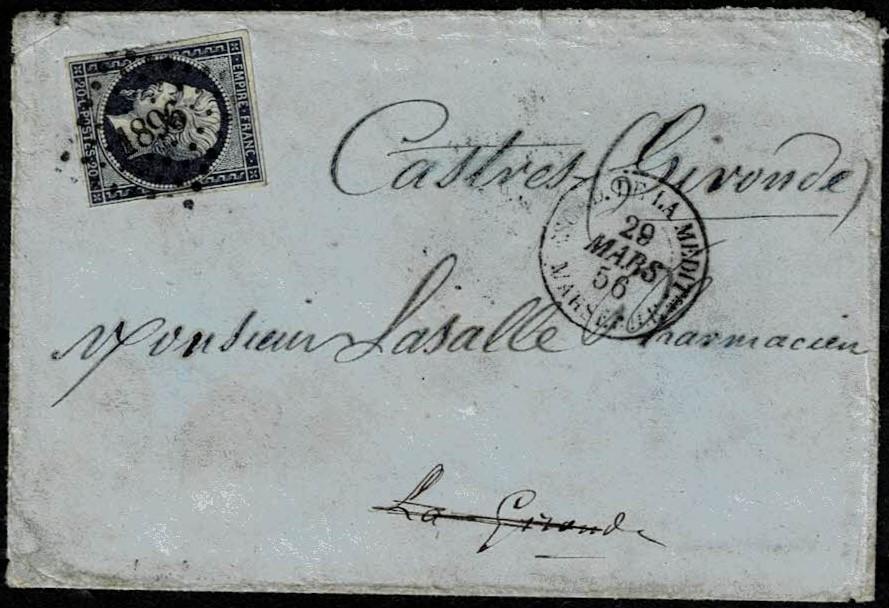 EMPIRE FRANC.
20 c. POSTES 20 c.
1896
Castres (Gironde)
DE LA MEDIT
29
MARS
56
MARSEILLE
Monsieur Lasalle Pharmacien
La Gironde